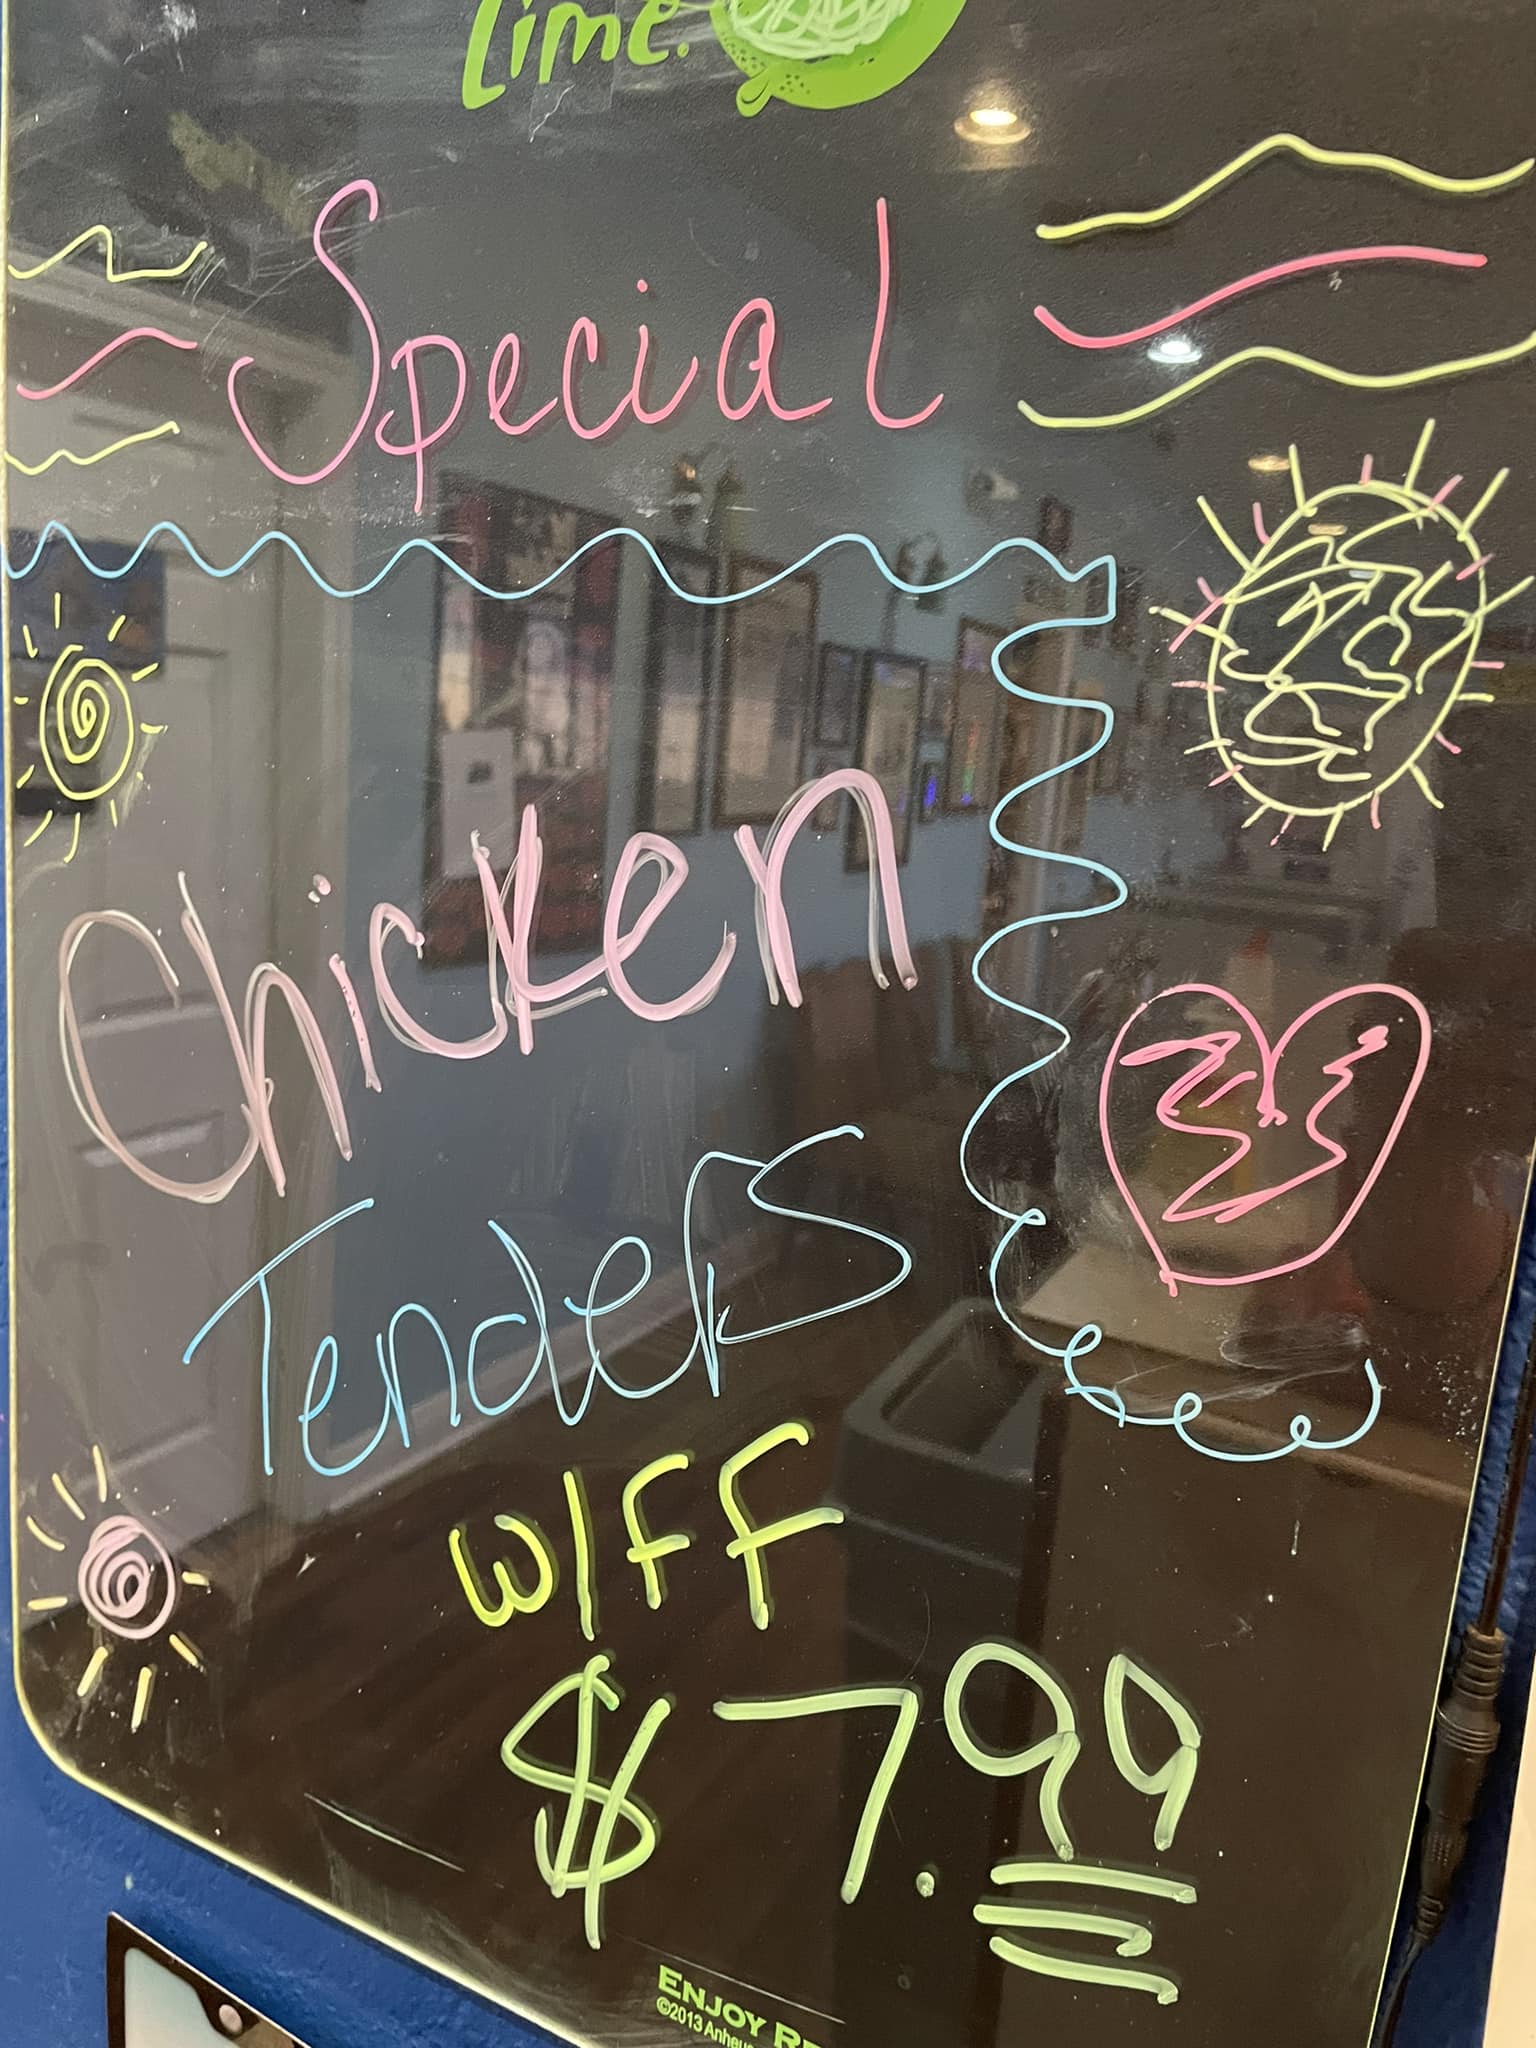 Lime.
Special
Chicken
Tenders
W/FF
$7.99
ENJOY
©2013